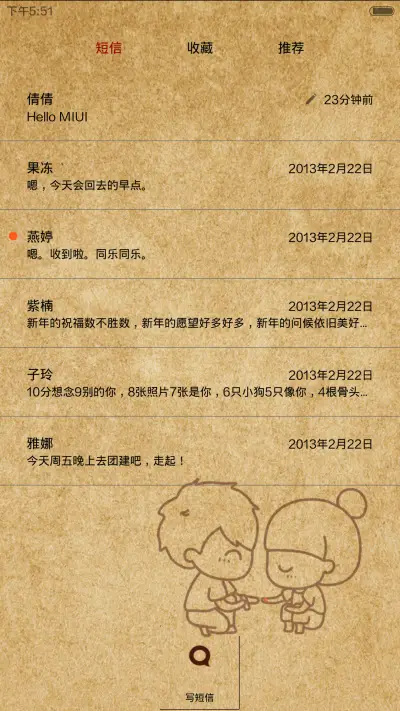 下午5:51
短信 收藏 推荐
倩倩 23分钟前
Hello MIUI
果冻 2013年2月22日
嗯，今天会回去的早点。
燕婷 2013年2月22日
嗯。收到啦。同乐同乐。
紫楠 2013年2月22日
新年的祝福数不胜数，新年的愿望好多好多，新年的问候依旧美好...
子玲 2013年2月22日
10分想念9别的你，8张照片7张是你，6只小狗5只像你，4根骨头...
雅娜 2013年2月22日
今天周五晚上去团建吧，走起！
写短信